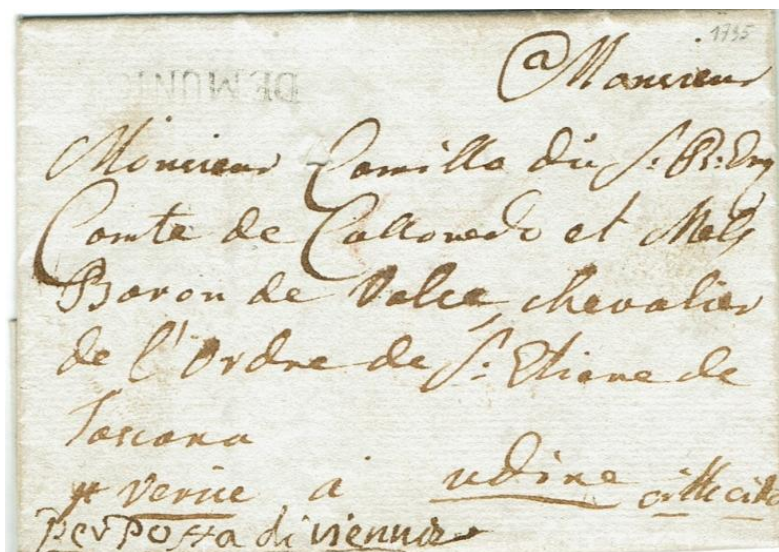 1795
DE MUNIC
@ Monsieur
Monsieur Camillo du S. R. Emp
Comte de Colloredo et Mels
Baron de Valse, chevalier
de l'Ordre de S. Etiene de
Toscana
Venise a Udine
per Posta di vienna